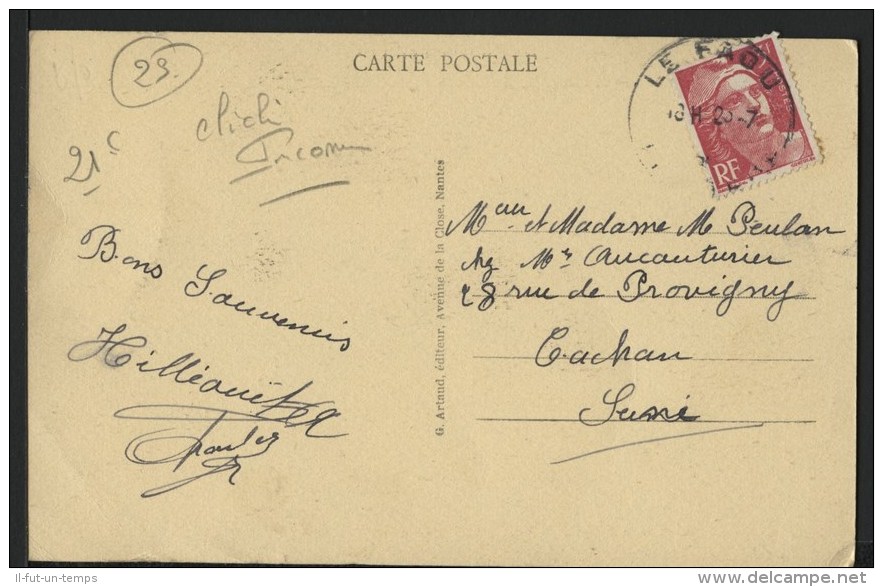 23.
CARTE POSTALE
LE FAOU
18H 25-7
RF
clichi
Inconnu
21c
Bons Souvenirs
G. Artaud, éditeur, Avenue de la Close, Nantes
et Madame M Peulan
chez Mr Aucouturier
28 rue de Provigny
Cachan
Seine
Il-fut-un-temps
delcampe.net